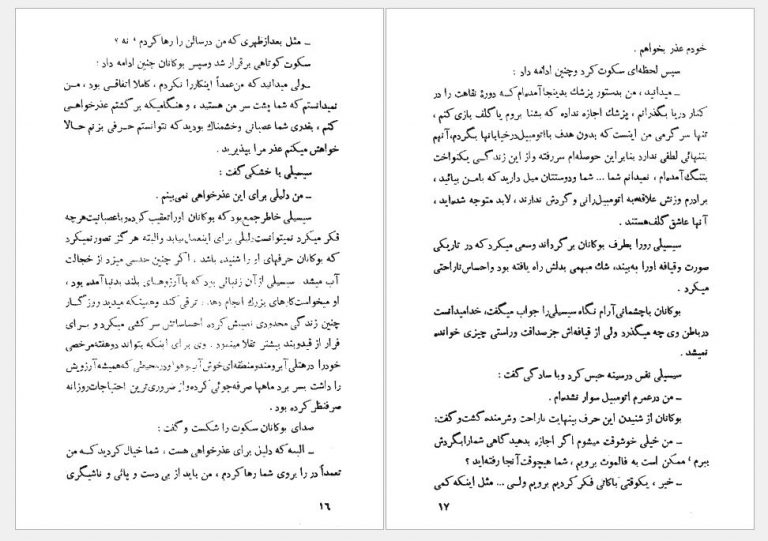 ـ مثل بعدازظهری که من درسالن را رها کردم ؟ نه ؟
سکوت کوتاهی برقرار شد وسپس بوکانان چنین ادامه داد :
ـ ولی میدانید که من‌عمداً اینکاررا نکردم ، کاملا اتفاقی بود ، من
نمیدانستم که شما پشت سر من هستید ، و هنگامیکه برگشتم عذرخواهی
کنم ، بقدری شما عصبانی وخشمناك بودید که نتوانستم حرفی بزنم حالا
خواهش میکنم عذر مرا بپذیرید .
سیسیلی با خشکی گفت :
ـ من دلیلی برای این عذرخواهی نمی‌بینم .
سیسیلی خاطرجمع‌بود که بوکانان اوراتعقیب کرده‌وباعصبانیت‌هرچه
فکر میکرد نمیتوانست‌دلیلی برای اینعمل‌بیابد والبته هرگز تصورنمیکرد
که بوکانان حرفهای او را شنیده باشد . اگر چنین حدسی میزد از خجالت
آب میشد سیسیلی ازآن زنهائی بود که باآرزوهای بلند بدنیاآمده بود ،
او میخواست‌کارهای بزرك انجام دهد ، ترقی کند وهمینکه میدید روزگار
چنین زندگی محدودی نصیبش کرده احساساتش سرکشی میکرد و برای
فرار از قیدوبند بیشتر تقلا مینمود . وی برای اینکه بتواند دوهفته‌مرخصی
خودرا درهتلی آبرومندومنطقه‌ای‌خوش آب‌وهواودرمحیطی که‌همیشه آرزویش
را داشت بسر برد ماهها صرفه‌جوئی کرده‌واز ضروری‌ترین احتیاجات‌روزانه
صرفنظر کرده بود .
صدای بوکانان سکوت را شکست و گفت :
ـ البته که دلیل برای عذرخواهی هست ، شما خیال کردید کـه من
تعمداً در را بروی شما رها کردم ، من باید از بی دست و پائی و ناشیگری
۱٦
خودم عذر بخواهم .
سپس لحظه‌ای سکوت کرد وچنین ادامه داد :
ـ میدانید ، من بدستور پزشك بدینجا آمده‌ام کـه دورهٔ نقاهت را در
کنار دریا بگذرانم ، پزشك اجازه نداده که بشنا بروم یاگلف بازی کنم ،
تنها سرگرمی من اینست که بدون هدف بااتومبیل‌درخیابانها بگردم،آنهم
بتنهائی لطفی ندارد بنابراین حوصله‌ام سررفته واز این زندگی یکنواخت
بتنگ‌آمده‌ام ، نمیدانم شما ... شما ودوستتان میل دارید که بامـن بیائید ،
برادرم وزنش علاقه‌به اتومبیل‌رانی وگردش ندارند ، لابد متوجه شده‌اید ،
آنها عاشق گلف‌هستند .
سیسیلی رورا بطرف بوکانان برگرداند وسعی میکرد که در تاریکی
صورت وقیافه اورا به‌بیند، شك مبهمی بدلش راه یافته بود واحساس‌ناراحتی
میکرد .
بوکانان باچشمانی‌آرام نگاه سیسیلی‌را جواب میگفت، خدامیدانست
درباطن وی چه میگذرد ولی از قیافه‌اش جزصداقت وراستی چیزی خوانده
نمیشد .
سیسیلی نفس درسینه حبس کرد وباسادگی گفت :
ـ من درعمرم اتومبیل سوار نشده‌ام .
بوکانان از شنیدن این حرف بینهایت ناراحت وشرمنده گشت‌وگفت:
ـ من خیلی خوشوقت میشوم اگر اجازه بدهیدگاهی شمارابگردش
ببرم ؟ ممکن است به فالموث برویم ، شما هیچوقت آنجا رفته‌اید ؟
ـ خیر ، یکوقتی باکاتی فکر کردیم برویم ولـی ... مثل اینکه کمی
۱۷